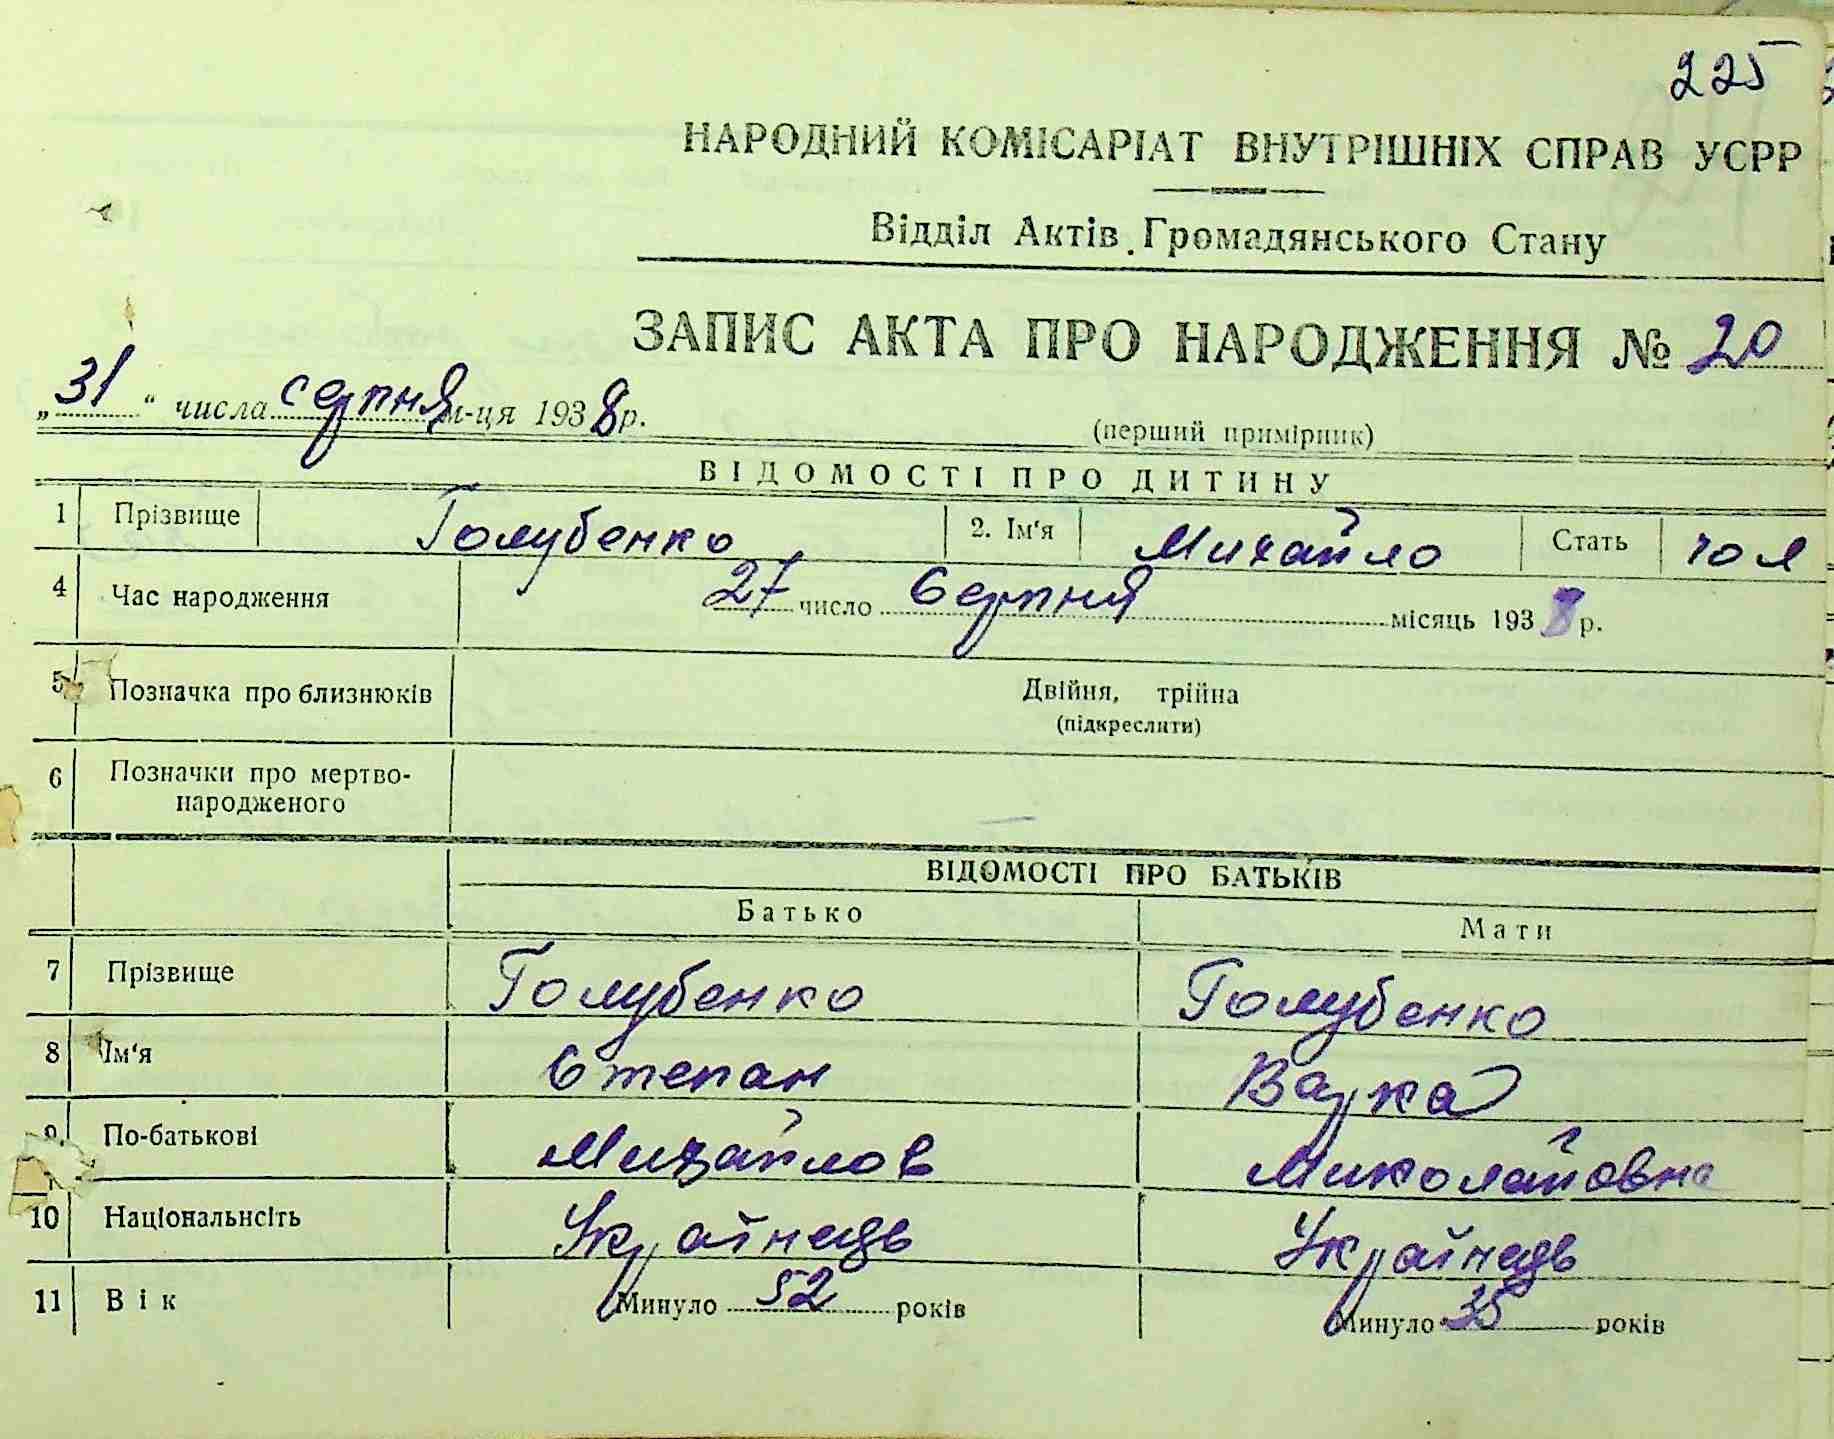 225
НАРОДНИЙ КОМІСАРІАТ ВНУТРІШНІХ СПРАВ УСРР
Відділ Актів Громадянського Стану
ЗАПИС АКТА ПРО НАРОДЖЕННЯ № 20
„31“ числа серпня м-ця 1938 р.
(перший примірник)
ВІДОМОСТІ ПРО ДИТИНУ
1 Прізвище Голубенко 2. Ім'я Михайло Стать чол
4 Час народження 27 число Серпня місяць 1938 р.
5 Позначка про близнюків Двійня, трійна
(підкреслити)
6 Позначки про мертво-
народженого
ВІДОМОСТІ ПРО БАТЬКІВ
Батько Мати
7 Прізвище Голубенко Голубенко
8 Ім'я Степан Варка
9 По-батькові Михайлов Миколайовна
10 Національнсіть Українець Українець
11 Вік Минуло 52 років Минуло 35 років